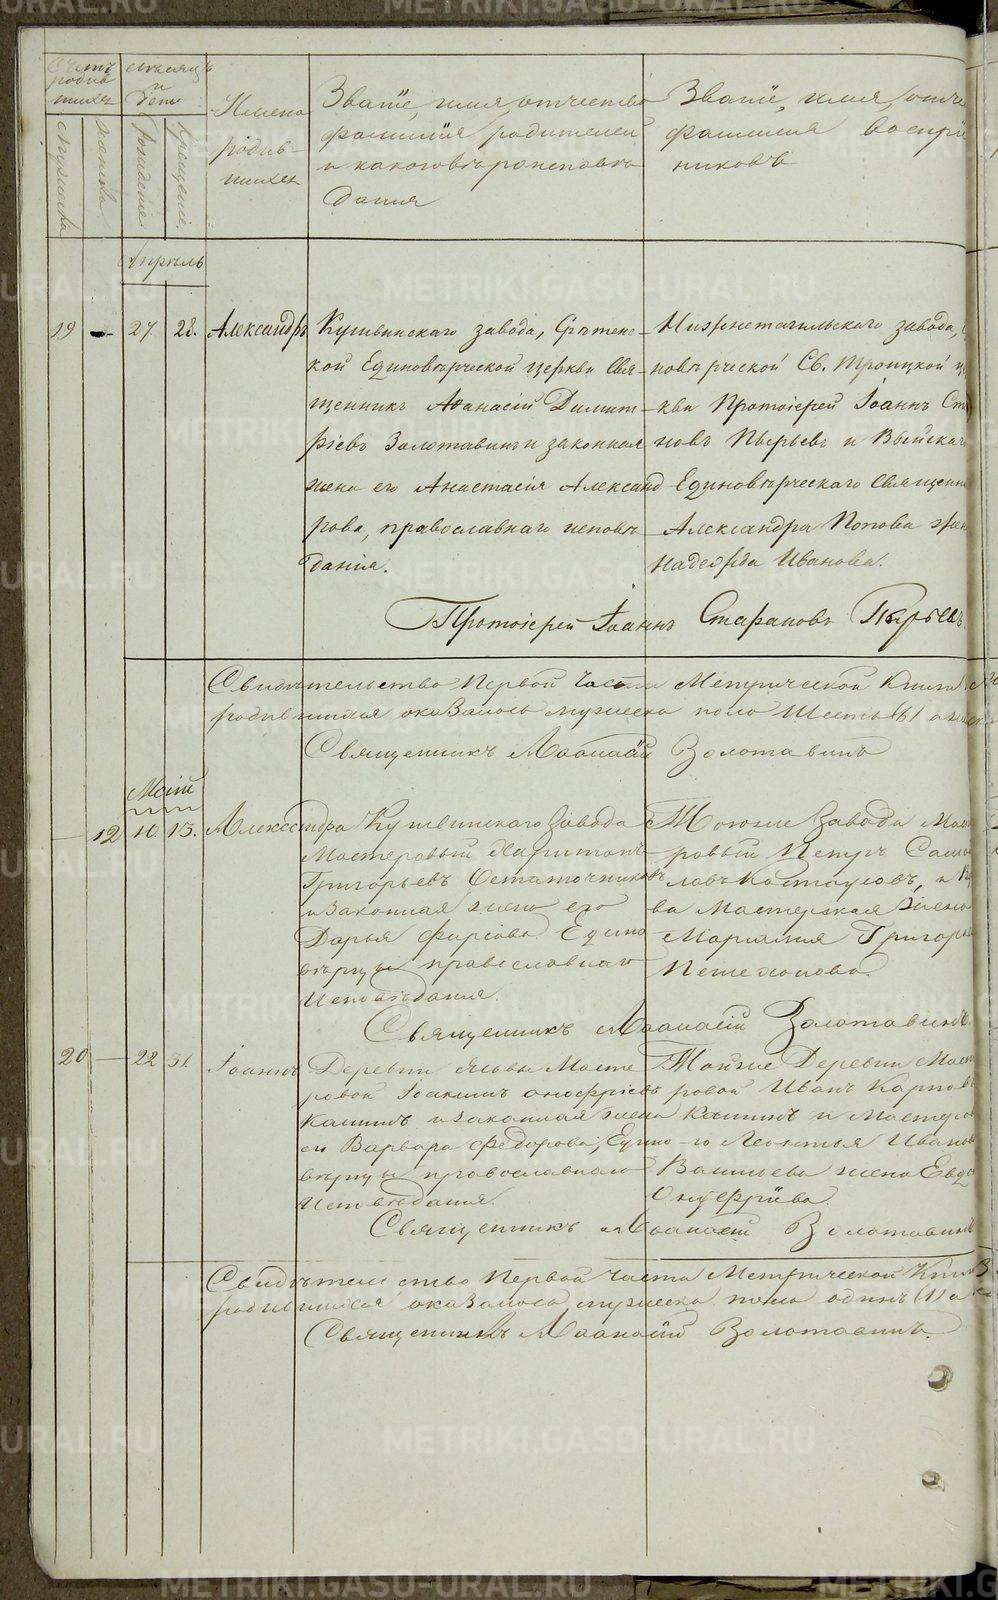 METRIKI.GASO-URAL.RU
Счетъ родив шихся
мѣсяцъ и день
Имена родив- шихся
Званіе, имя, отчество
фамилія родителей
и какого вѣроисповѣ
данія
Званіе, имя, отче
фамилія воспріе
никовъ
мужеска
женска
рожденія
крещенія
Апрѣль
19 — 27. 28. Александръ
Кушвинскаго завода, Срѣтенс-
кой Единовѣрческой церкви Свя-
щенникъ Аѳанасій Димит-
ріевъ Золотавинъ и законная
жена его Анастасія Александ
рова, православнаго исповѣ
данія.
Нижнетагильскаго завода,
новѣрческой Св. Троицкой ц
кви Протоіерей Іоаннъ Ст
новъ Пырьевъ и Выйскаго
Единовѣрческаго Священн
Александра Попова жен
Надежда Иванова.
Протоіерей Іоаннъ Стафановъ Пырьевъ
Свидѣтельство Первой Части Метрической Книги
родившихся оказалось мужеска пола Шесть (6)
Священникъ Аѳанасій Золотавинъ
Маій
12 10. 13. Александра
Кушвинскаго Завода
Мастеровый Харитонъ
Григорьевъ Остаточниковъ
и Законная жена его
Дарья Фирсова Едино
вѣрцы православнаго
Исповѣданія.
Тогоже Завода Маст
ровый Петръ
ловъ Костоусовъ, и
ва Мастерская Жена
Маріамія Григорь
Священникъ Аѳанасій Золотавинъ.
20 — 22 31. Іоаннъ
Деревни Ясьвы Масте
ровой Іоакимъ Онофріевъ
Кашинъ и законная жена
его Варвара Федорова, Едино
вѣрцы православнаго
Исповѣданія.
Тойже Деревни Маст
ровой Иванъ Карпов
Кашинъ и Мастеров
го Леонтья Иванов
Васильева жена Евдо
Онуфріева.
Священникъ Аѳанасій Золотавинъ
Свидѣтельство Первой части Метрической Книги
родившихся оказалось мужеска пола одинъ (1) а
Священникъ Аѳанасій Золотавинъ.